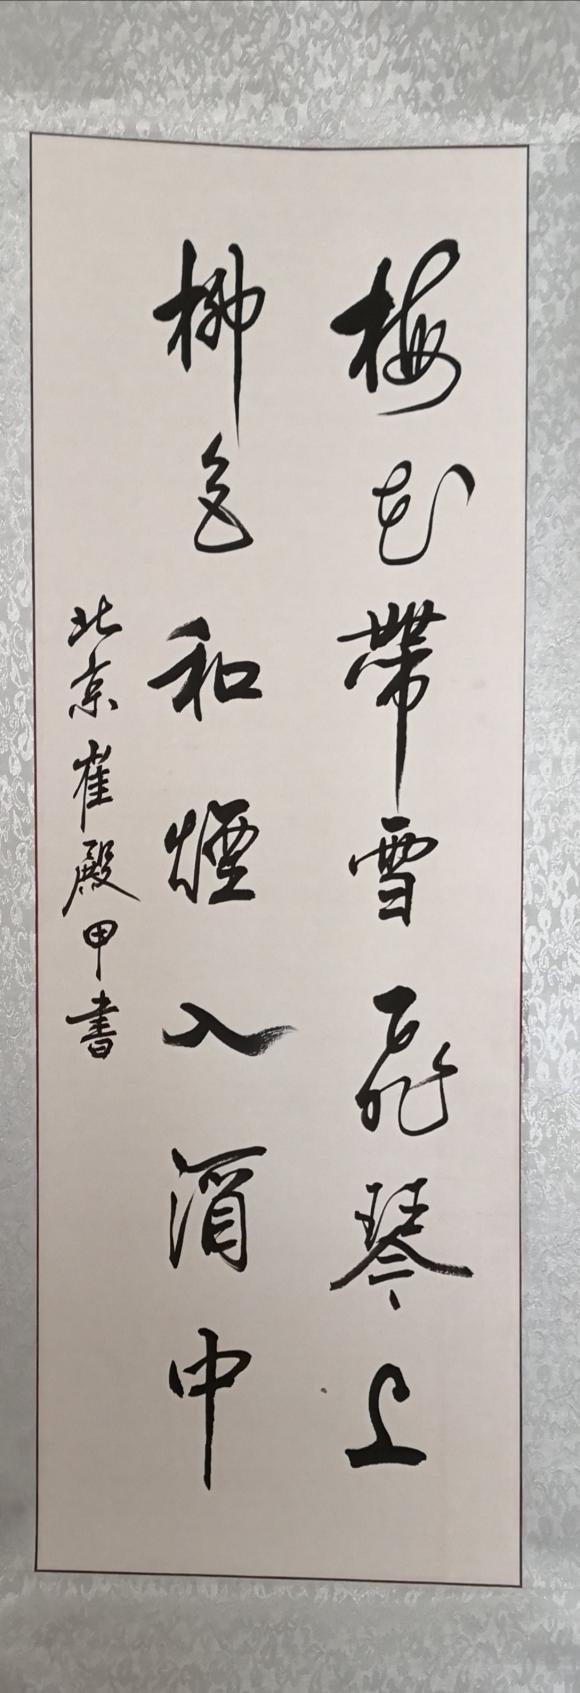 梅花帶雪飛琴上
柳色和煙入酒中
北京崔殿甲書